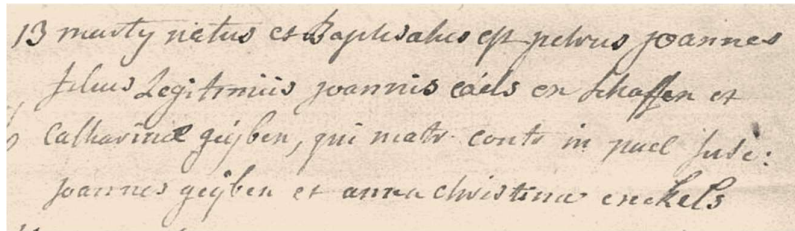 13 marty natus et Baptisatus est petrus joannes
filius Legitimus joannis caels ex schaffen et
Catharinae geijben, qui matr. contr in pael susc:
joannes geijben et anna christina enckels